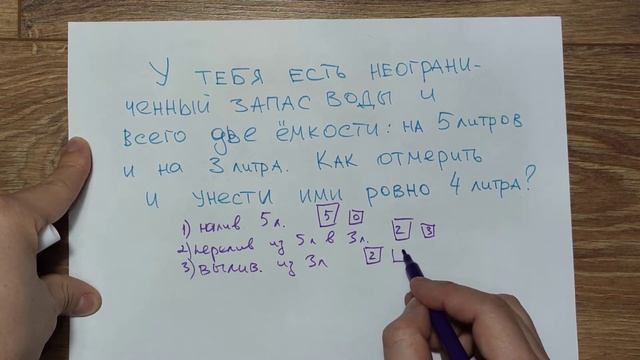 У ТЕБЯ ЕСТЬ НЕОГРАНИ-
ЧЕННЫЙ ЗАПАС ВОДЫ И
ВСЕГО ДВЕ ЁМКОСТИ: НА 5 ЛИТРОВ
И НА 3 ЛИТРА. КАК ОТМЕРИТЬ
И УНЕСТИ ИМИ РОВНО 4 ЛИТРА?
1) налив 5 л. 5 0
2) перелив из 5 л в 3 л. 2 3
3) вылив. из 3 л 2